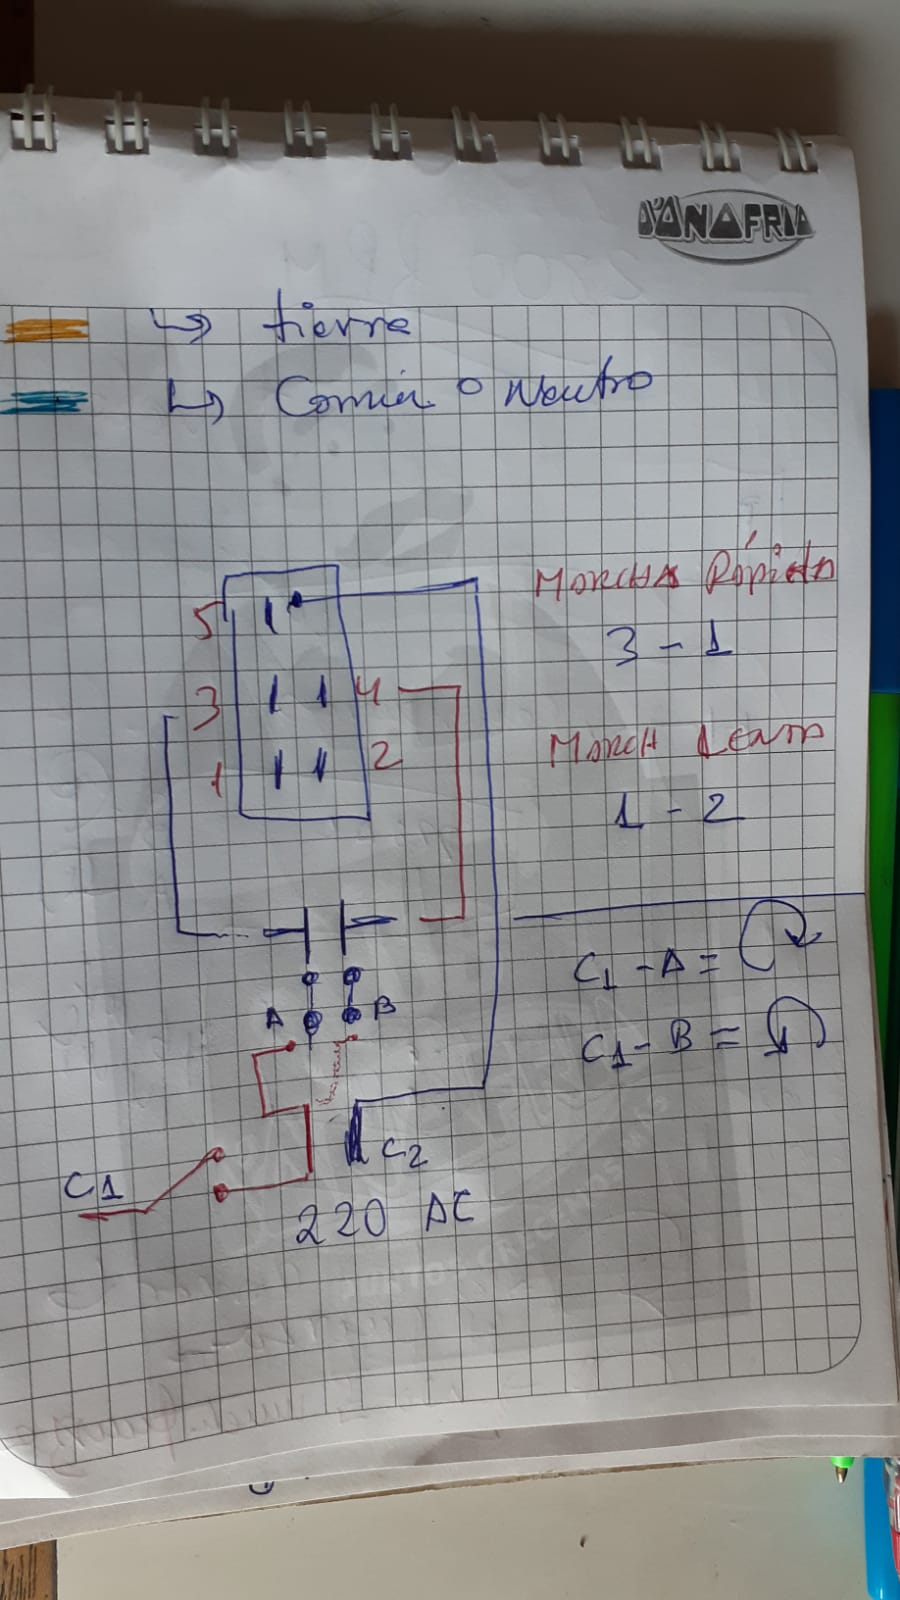 D'ANAFRIA
↳ tierra
↳ Comun o Neutro
MARCHA Rápida
3 - 1
MARCH Lenta
1 - 2
5
3 4
1 2
C1 - A =
C1 - B =
A B
C1
C2
220 AC